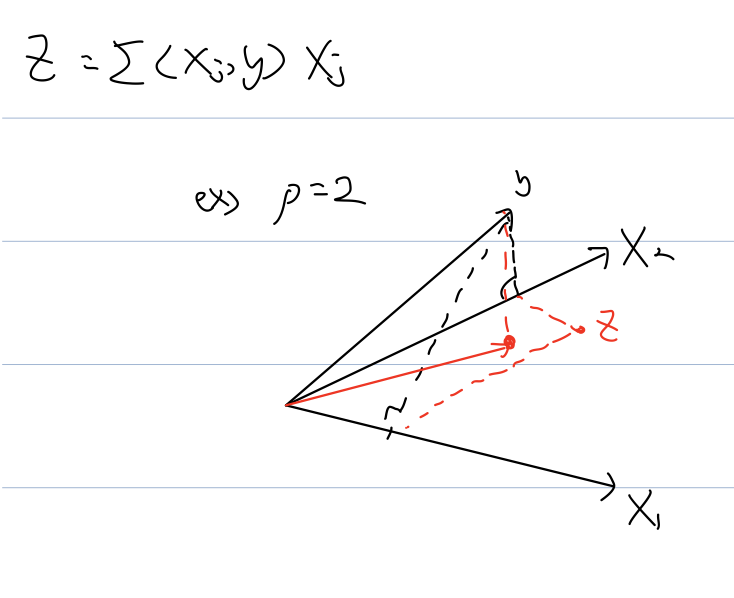 Z = Σ⟨Xj, y⟩ Xj
ex) p=2
y
X2
Z
X1